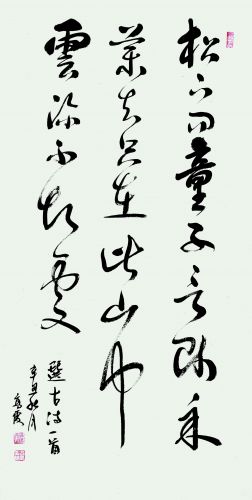 松下問童子言師采
藥去只在此山中
雲深不知處
選古詩一首
辛丑秋月